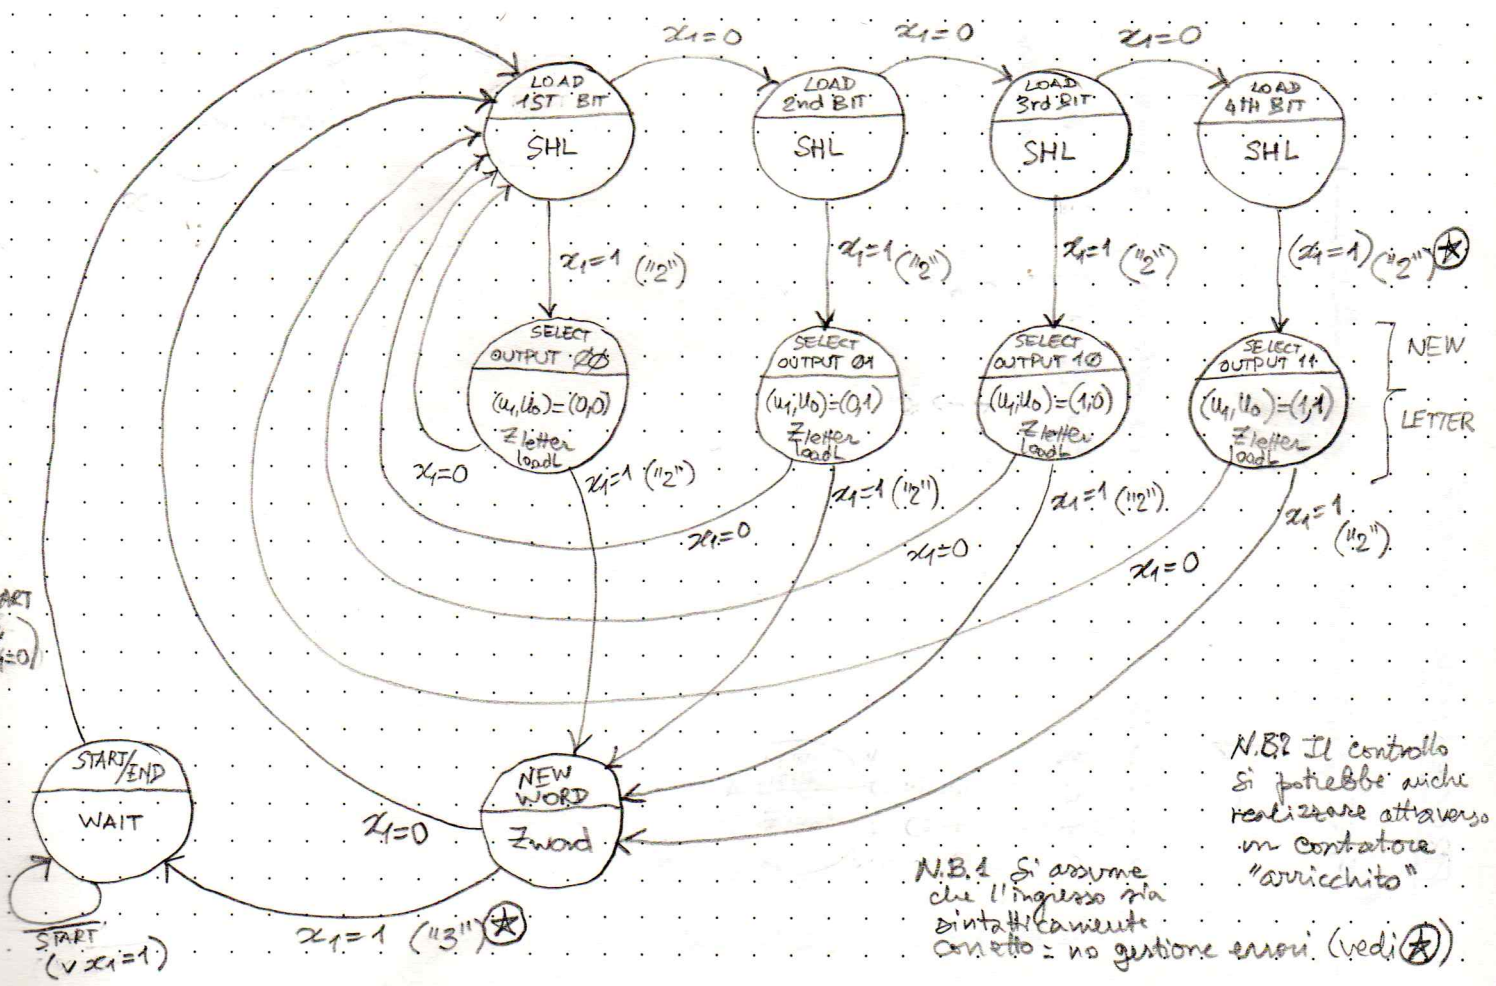 x1=0
x1=0
x1=0
LOAD
1ST BIT
SHL
LOAD
2nd BIT
SHL
LOAD
3rd BIT
SHL
LOAD
4TH BIT
SHL
x1=1 ("2")
x1=1 ("2")
x1=1 ("2")
(x1=1) ("2")
SELECT
OUTPUT 00
(u1,u0)=(0,0)
Zletter
loadL
SELECT
OUTPUT 01
(u1,u0)=(0,1)
Zletter
loadL
SELECT
OUTPUT 10
(u1,u0)=(1,0)
Zletter
loadL
SELECT
OUTPUT 11
(u1,u0)=(1,1)
Zletter
loadL
NEW
LETTER
x1=0
x1=1 ("2")
x1=0
x1=1 ("2")
x1=0
x1=1 ("2")
x1=0
x1=1
("2")
ART
=0)
START/END
WAIT
START
(v x1=1)
NEW
WORD
Zword
x1=0
x1=1 ("3")
N.B.1 Si assume
che l'ingresso sia
sintatticamente
corretto = no gestione errori (vedi ☆)
N.B.2 Il controllo
si potrebbe anche
realizzare attraverso
un contatore
"arricchito"